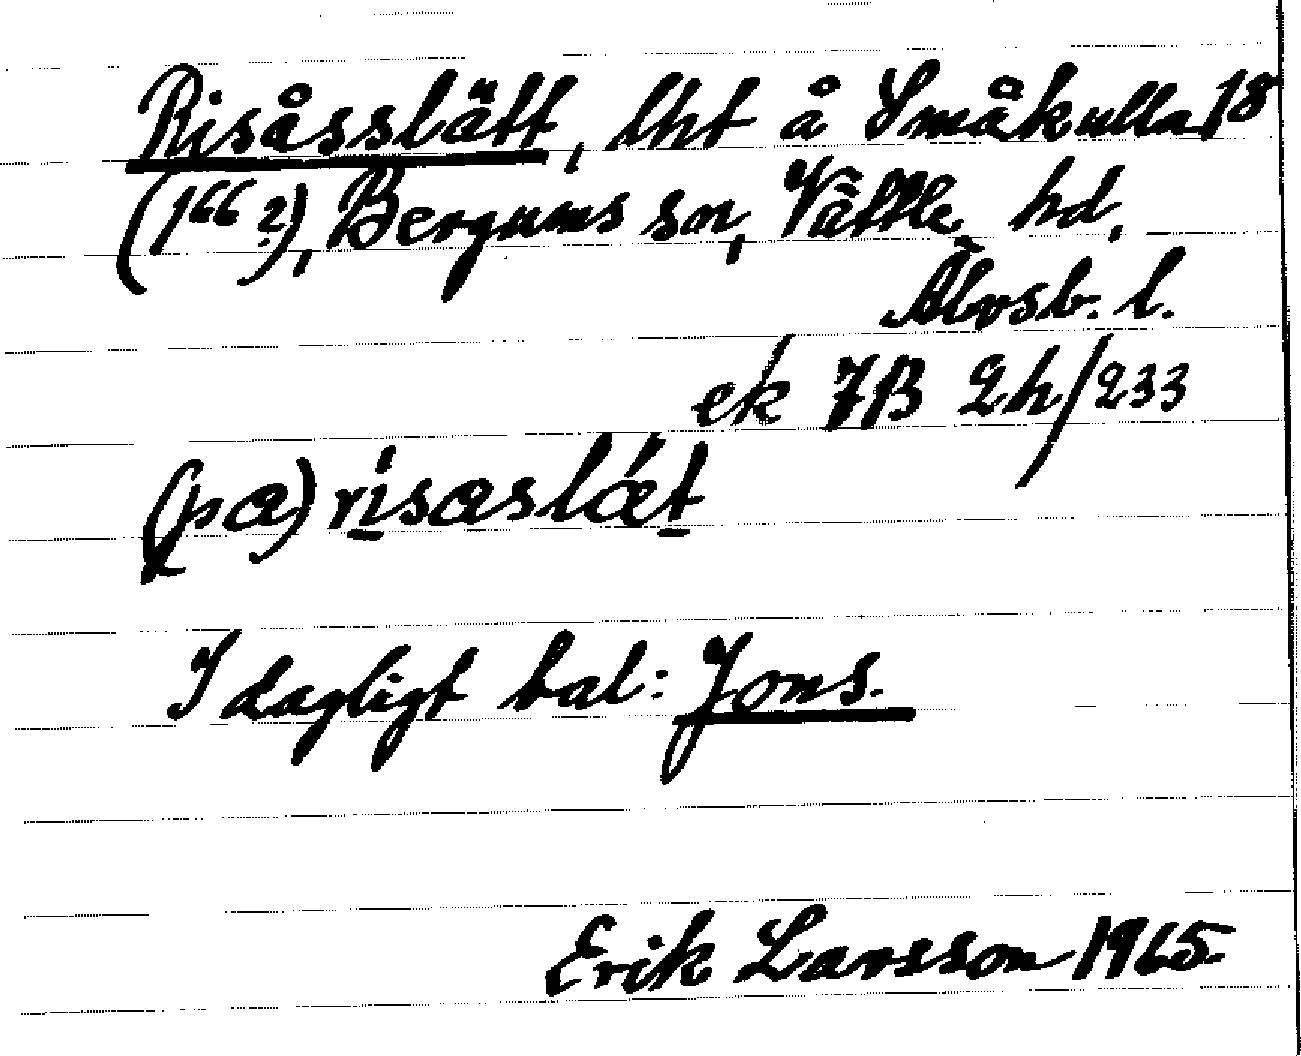 Risåsslätt, lht å Småkulla 18
(1⁶⁶?), Bergums sn, Vättle hd,
Älvsb. l.
ek 7B 2h/233
(pα) risαslǽt
I dagligt tal: Jons.
Erik Larsson 1965.